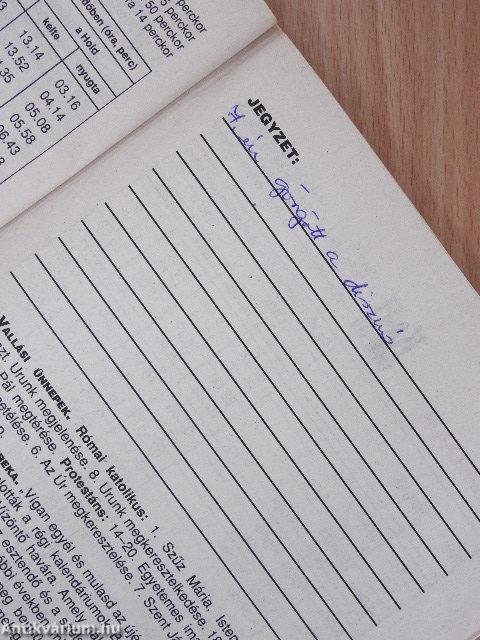 5 perckor
50 perckor
14 perckor
dében (óra, perc)
a Hold
kelte
nyugta
13.14
03.16
13.52
04.14
.35
05.08
05.58
06.43
JEGYZET:
7.-én göngött a disznó
VALLÁSI ÜNNEPEK. Római katolikus: 1. Szűz Mária, Isten
zt. Urunk megjelenése. 8. Urunk megkeresztelkedése. 18
Pál megtérése. Protestáns: 14-20. Egyetemes im
etélése. 6. Az Úr megkeresztelése. 7. Szent Já
REKA. „Vígan egyél és mulasd az újé
lották a régi kalendáriumo
ízöntő havára. Amely
esztendő és a s
ábbi években
Antikvárium.hu